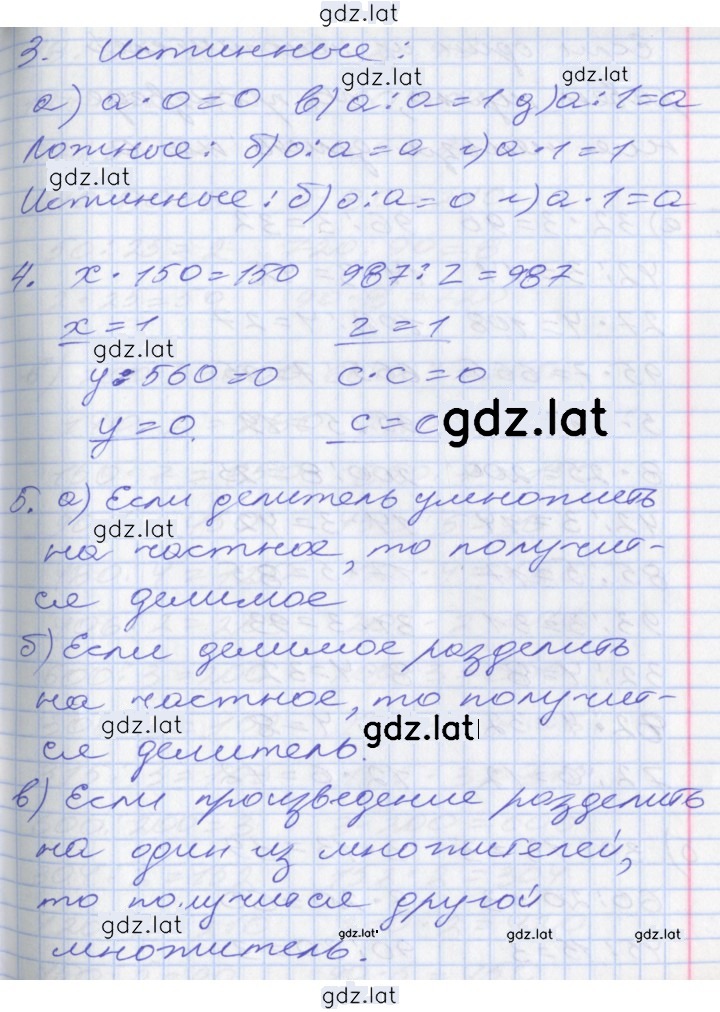 gdz.lat
3. Истинные:
gdz.lat gdz.lat
а) a · 0 = 0 в) a : a = 1 д) a : 1 = a
Ложные: б) 0 : a = a г) a · 1 = 1
gdz.lat
Истинные: б) 0 : a = 0 г) a · 1 = a
4. x · 150 = 150 987 : z = 987
x = 1 z = 1
gdz.lat
y : 560 = 0 c · c = 0
y = 0. c =
gdz.lat
5. а) Если делитель умножить
gdz.lat
на частное, то получит-
ся делимое
б) Если делимое разделить
на частное, то получит-
gdz.lat gdz.lat
ся делитель.
в) Если произведение разделить
на один из множителей,
то получится другой
gdz.lat gdz.lat gdz.lat
множитель.
gdz.lat